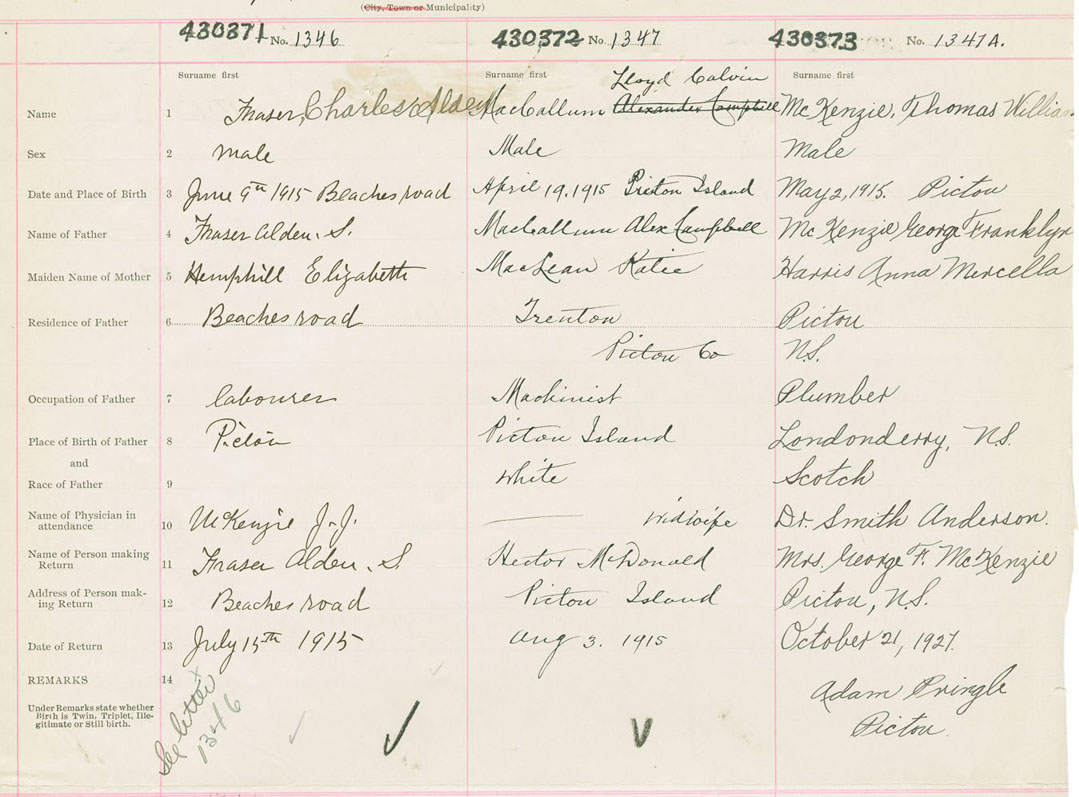 (City, Town or Municipality)
430371 No. 1346 430372 No. 1347 430373 No. 1347A.
Surname first Surname first Lloyd Calvin Surname first
Name 1 Fraser, Charles Alden MacCallum Alexander Campbell McKenzie, Thomas William
Sex 2 male Male Male
Date and Place of Birth 3 June 9th 1915 Beaches road April 19, 1915 Pictou Island May 2, 1915. Pictou
Name of Father 4 Fraser Alden. S. MacCallum Alex Campbell McKenzie George Franklyn
Maiden Name of Mother 5 Hemphill Elizabeth MacLean Katie Harris Anna Mercella
Residence of Father 6 Beaches road Trenton Pictou
Pictou Co N.S.
Occupation of Father 7 labourer Machinist Plumber
Place of Birth of Father 8 Pictou Pictou Island Londonderry, N.S.
and
Race of Father 9 White Scotch
Name of Physician in attendance 10 McKenzie J.J. midwife Dr. Smith Anderson.
Name of Person making Return 11 Fraser Alden. S Hector McDonald Mrs. George F. McKenzie
Address of Person making Return 12 Beaches road Pictou Island Pictou, N.S.
Date of Return 13 July 15th 1915 Aug 3. 1915 October 21, 1927.
REMARKS 14 Adam Pringle
Under Remarks state whether Birth is Twin, Triplet, Illegitimate or Still birth. Pictou.
See letter
1346